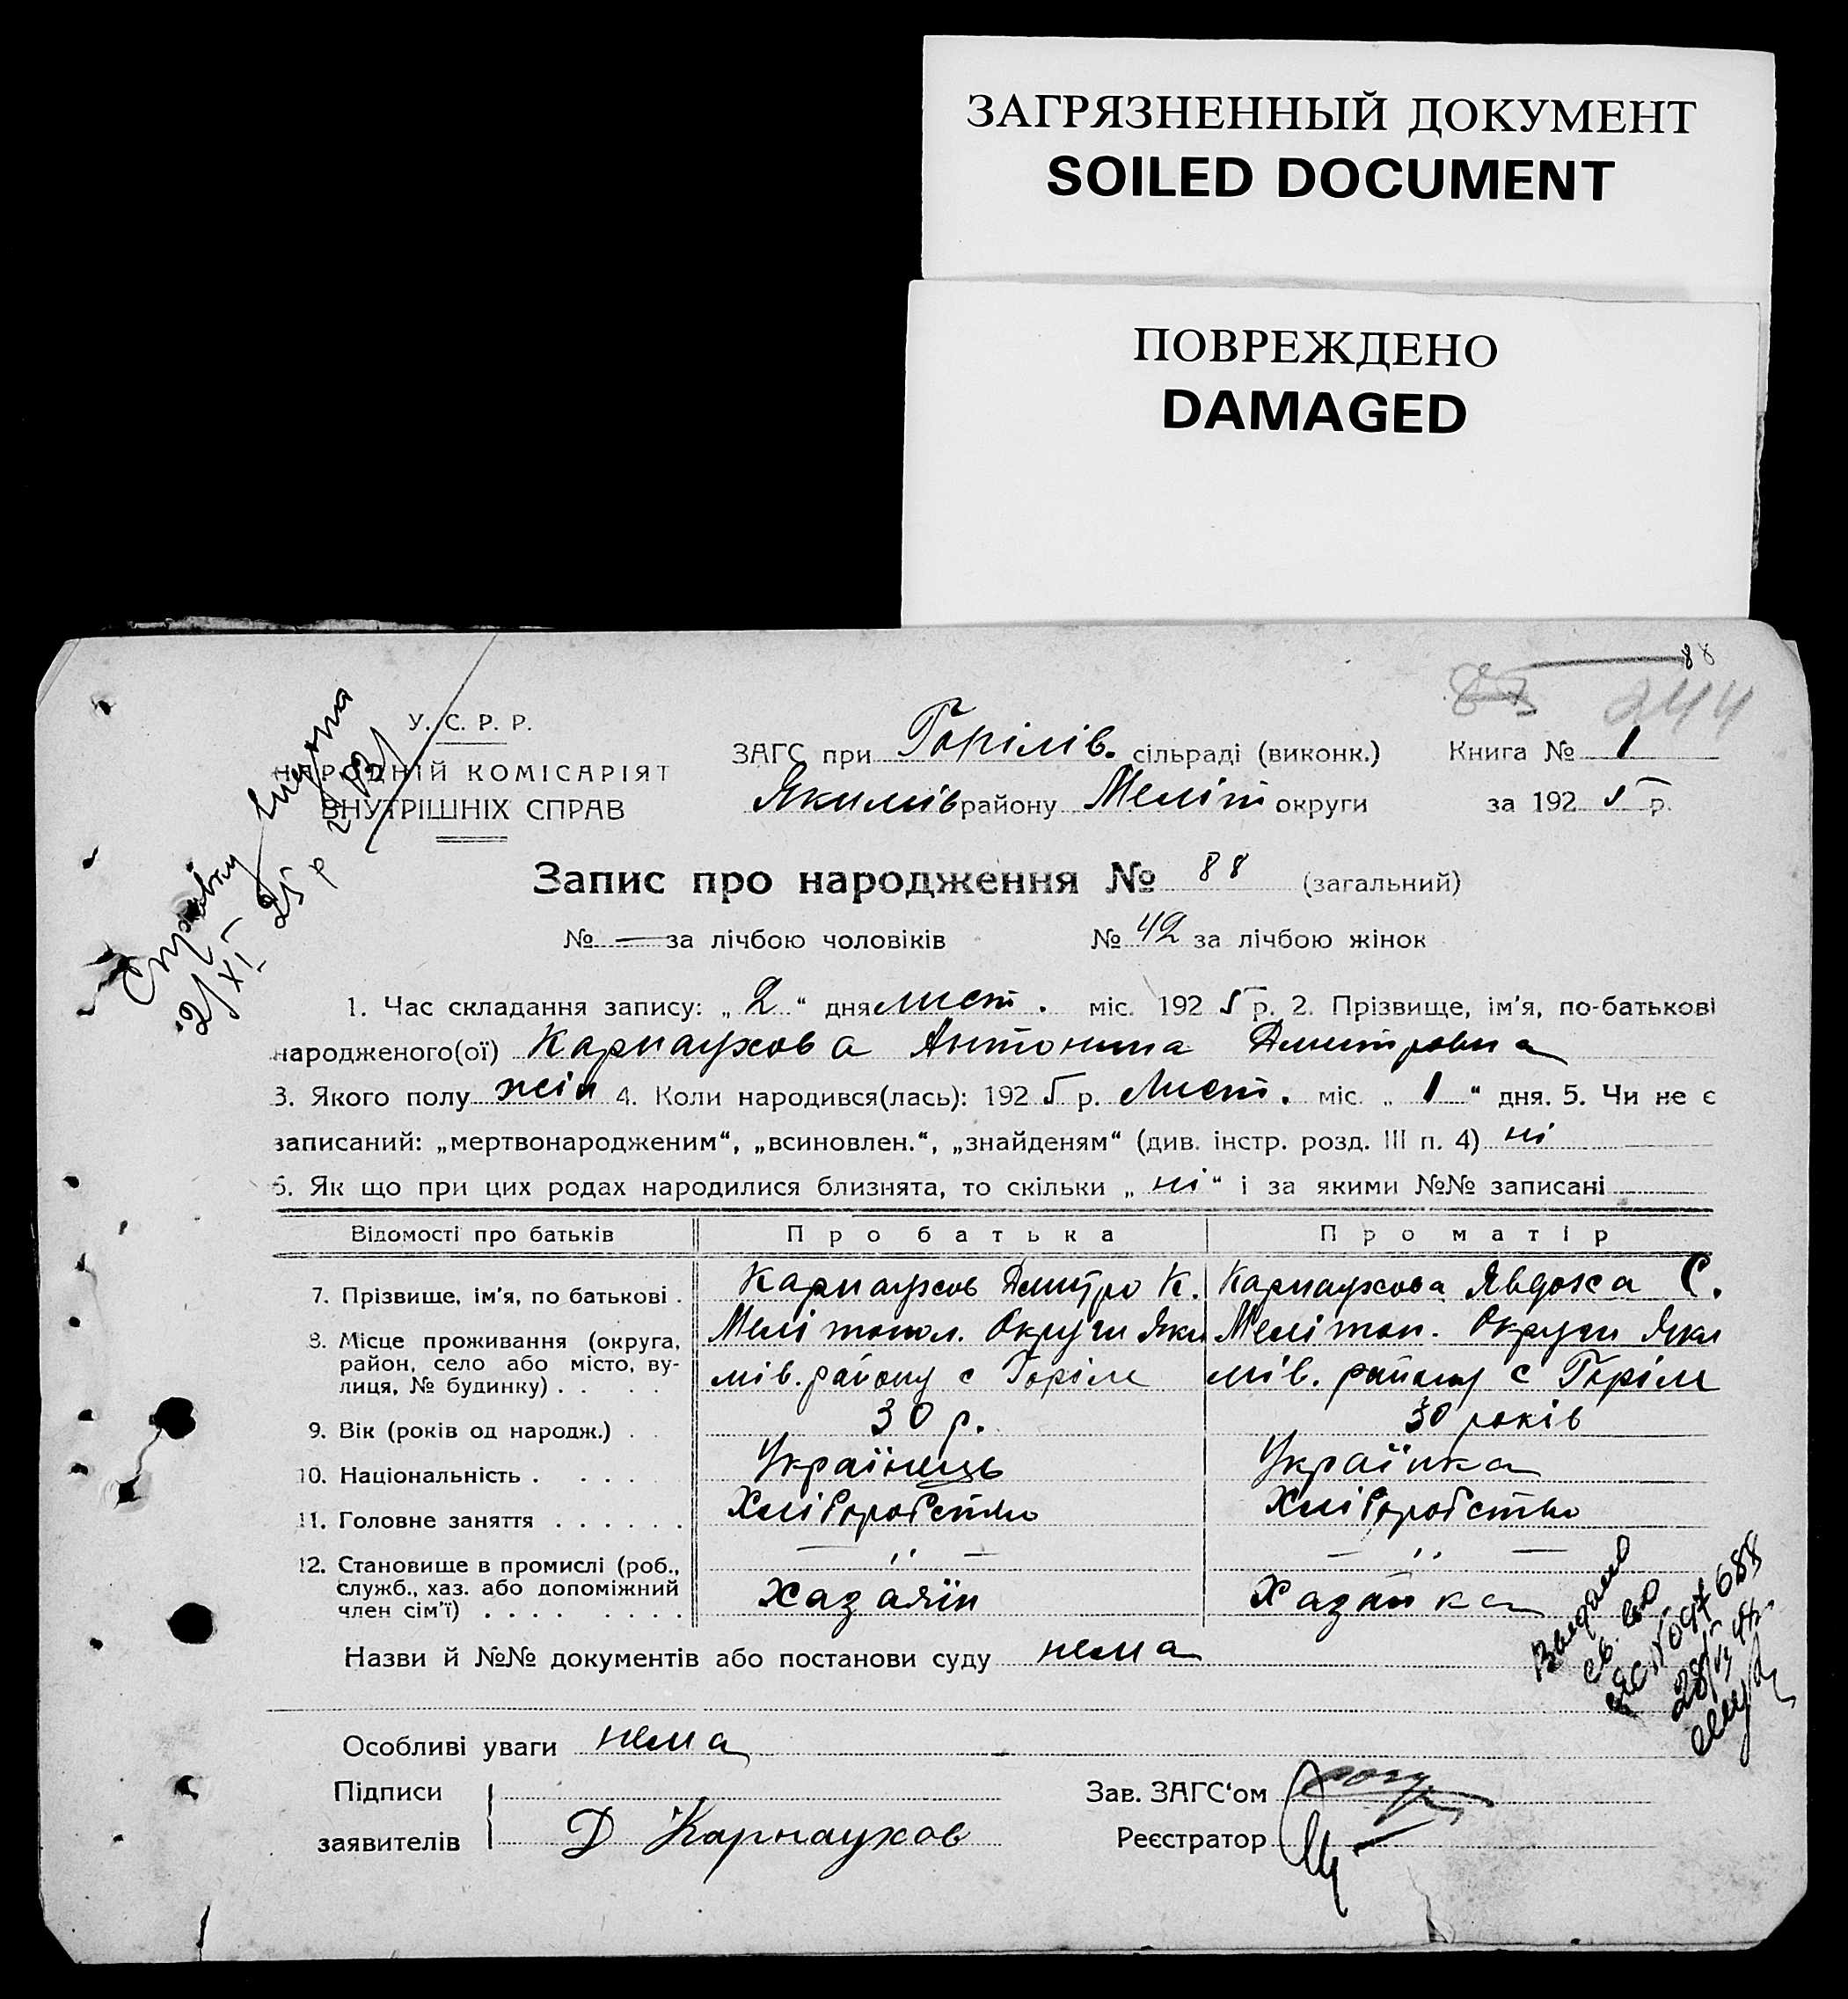 ЗАГРЯЗНЕННЫЙ ДОКУМЕНТ
SOILED DOCUMENT
ПОВРЕЖДЕНО
DAMAGED
88
87 244
У. С. Р. Р.
НАРОДНІЙ КОМІСАРІЯТ
ВНУТРІШНІХ СПРАВ
ЗАГС при Горілів. сільраді (виконк.) Книга № 1
Якимів району Меліт округи за 192 5 р.
Справку
21/XI 25 р
Запис про народження № 88 (загальний)
№ — за лічбою чоловіків № 42 за лічбою жінок
1. Час складання запису: „ 2 “ дня лист. міс. 192 5 р. 2. Прізвище, ім’я, по-батькові
народженого(ої) Карнаухова Антонина Дмитровна
3. Якого полу жін 4. Коли народився(лась): 192 5 р. Лист. міс. „ 1 “ дня. 5. Чи не є
записаний: „мертвонародженим“, „всиновлен.“, „знайденям“ (див. інстр. розд. III п. 4) ні
6. Як що при цих родах народилися близнята, то скільки „ ні “ і за якими №№ записані
Відомості про батьків Про батька Про матір
7. Прізвище, ім’я, по батькові . Карнаухов Дмитро К. Карнаухова Явдоха С.
8. Місце проживання (округа, район, село або місто, вулиця, № будинку) . . . . Мелітопол. Округи Якимів. району с Горіле Мелітоп. Округи Якимів. району с Горіле
9. Вік (років од народж.) . . 30 р. 30 років
10. Національність . . . . Українець Українка
11. Головне заняття . . . . . . Хліборобство Хліборобство
12. Становище в промислі (роб., служб., хаз. або допоміжний член сім’ї) . . . . . . . . — „ — Хазаяїн — „ — Хазяйка
Назви й №№ документів або постанови суду нема
Особливі уваги нема
Підписи
заявителів Д Карнаухов
Зав. ЗАГС‘ом
Реєстратор